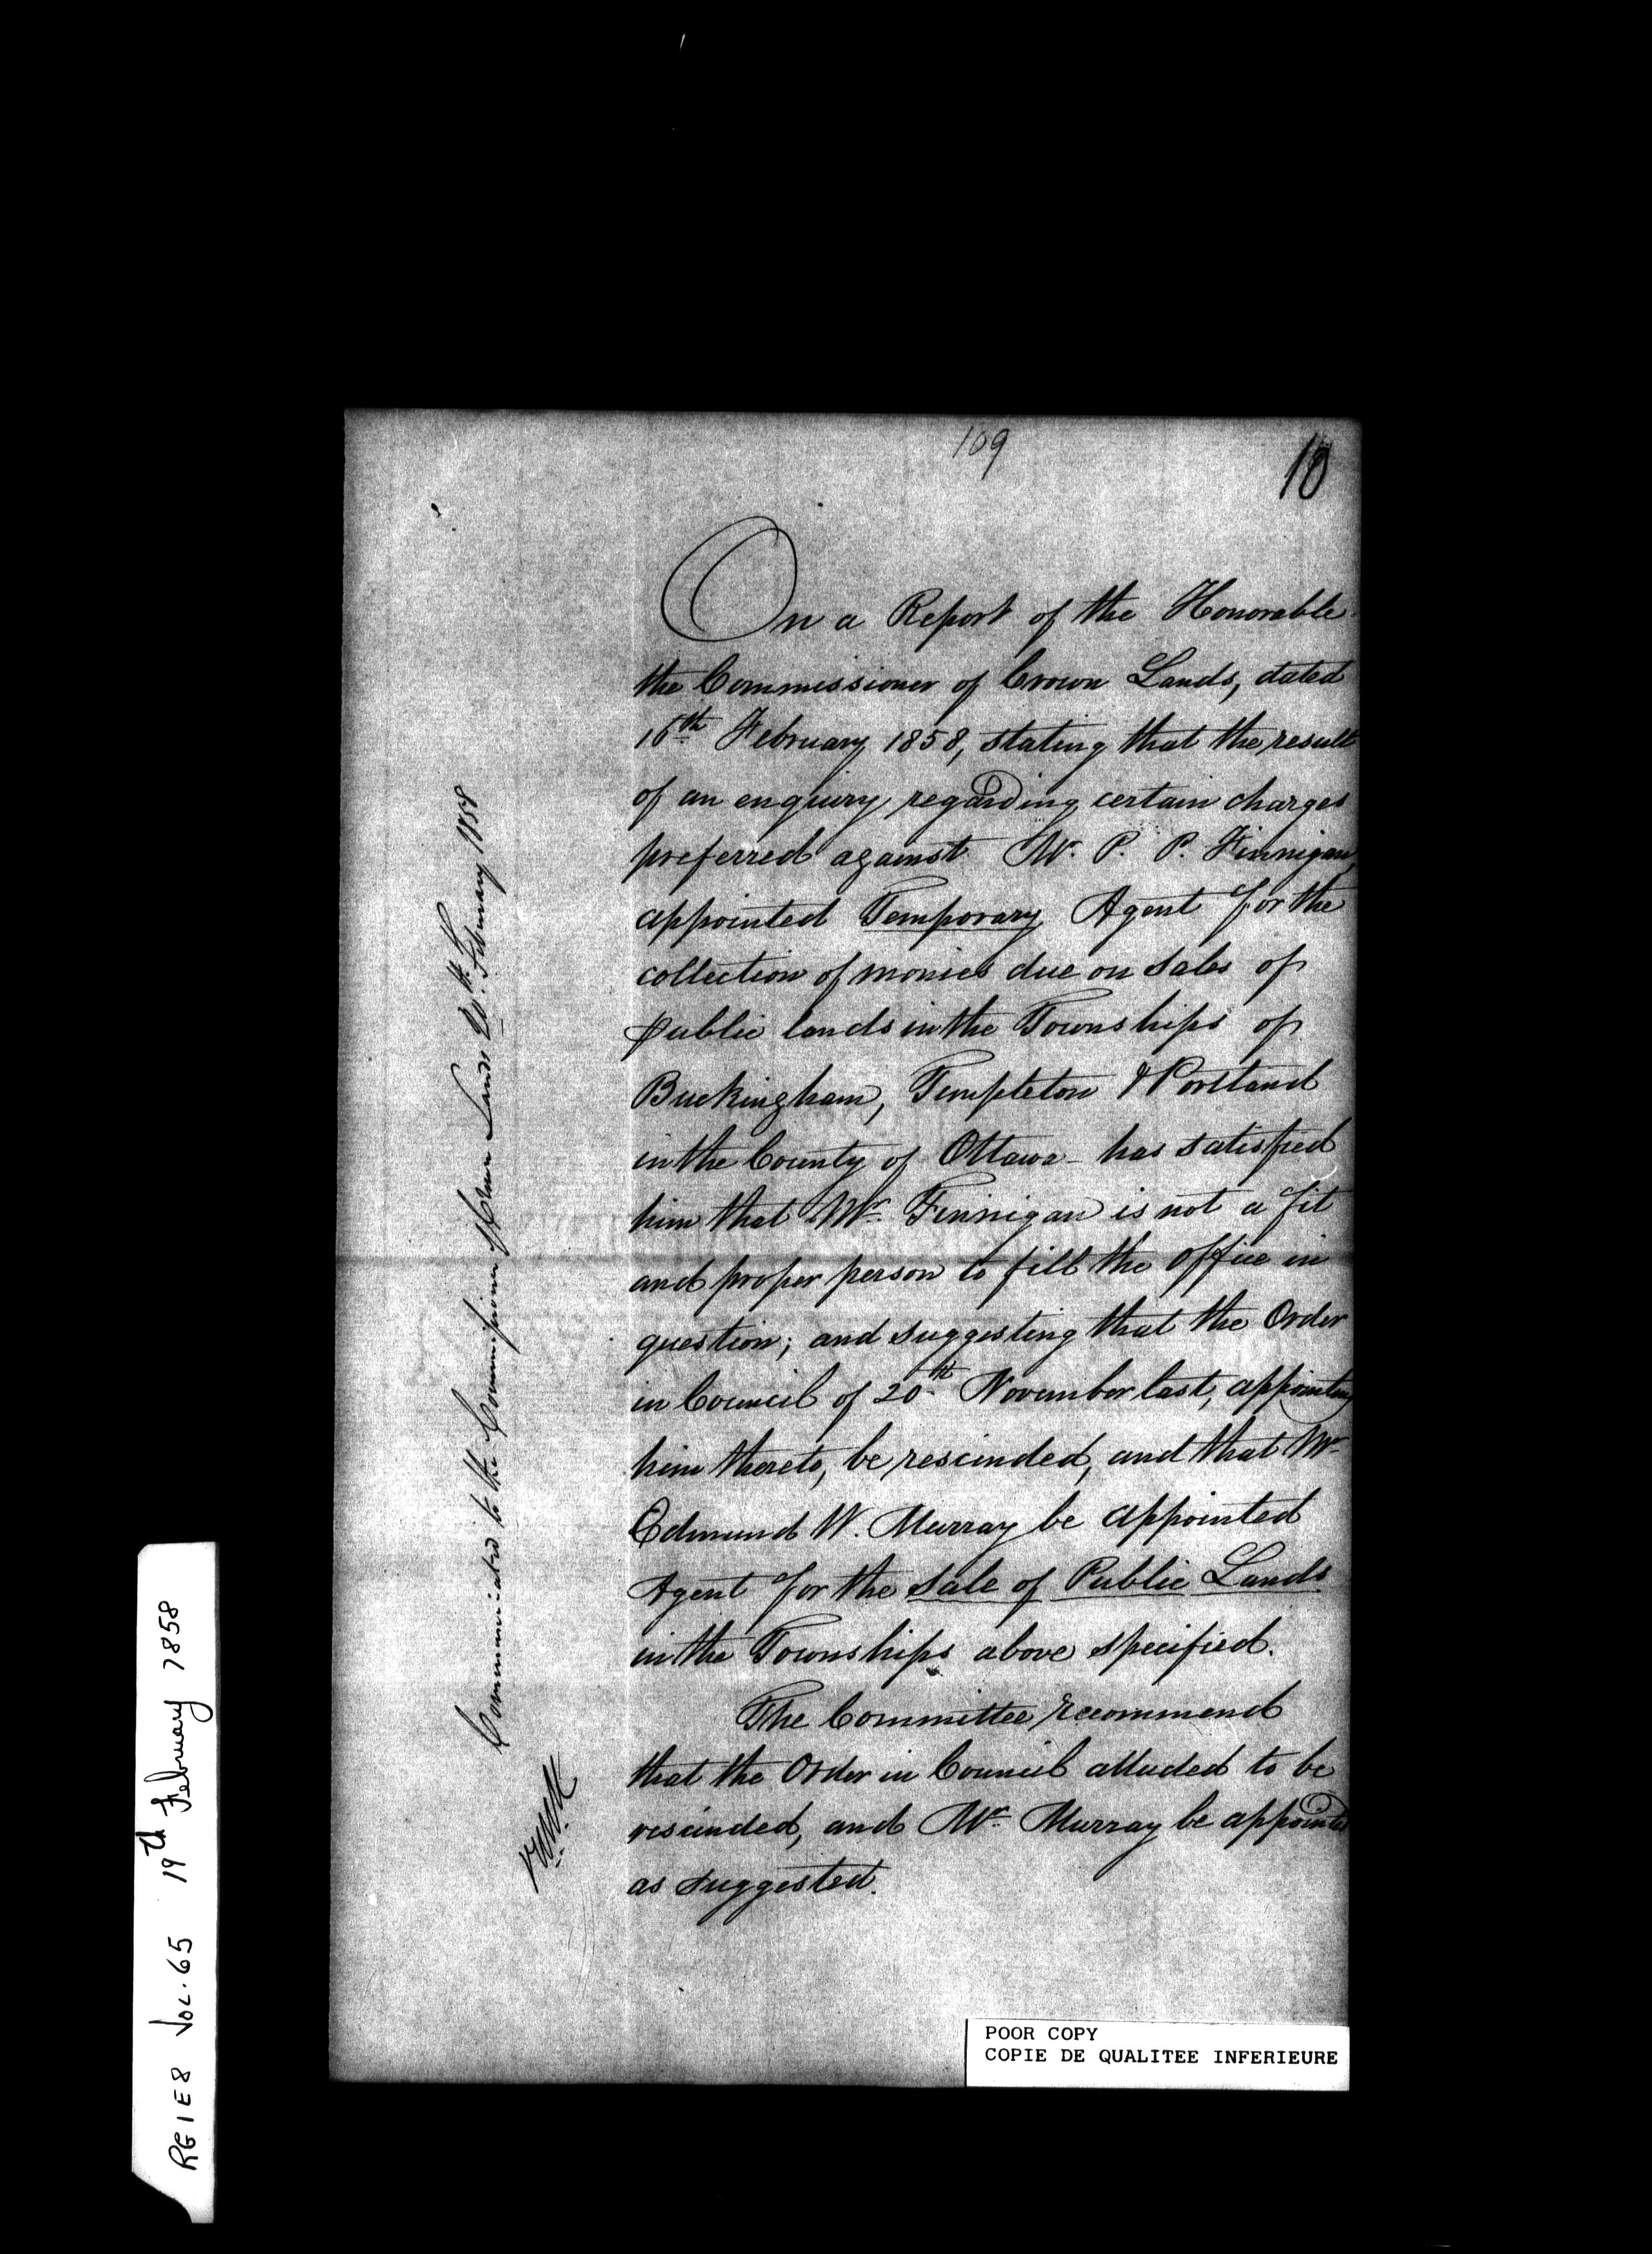 109
10
On a Report of the Honorable
the Commissioner of Crown Lands, dated
16th February 1858, stating that the result
of an enquiry regarding certain charges
preferred against W. P. P. Finnigan
appointed Temporary Agent for the
collection of monies due on sales of
public lands in the Townships of
Buckingham, Templeton & Portland
in the County of Ottawa - has satisfied
him that Mr. Finnigan is not a fit
and proper person to fill the office in
question; and suggesting that the Order
in Council of 20th November last, appointing
him thereto, be rescinded, and that Mr.
Edmund W. Murray be appointed
Agent for the sale of Public Lands
in the Townships above specified.
The Committee recommend
that the Order in Council alluded to be
rescinded, and Mr. Murray be appointed
as suggested.
Communicated to the Commissioner of Crown Lands 20th February 1858
RG1E8 VOL. 65 19th February 1858
POOR COPY
COPIE DE QUALITEE INFERIEURE